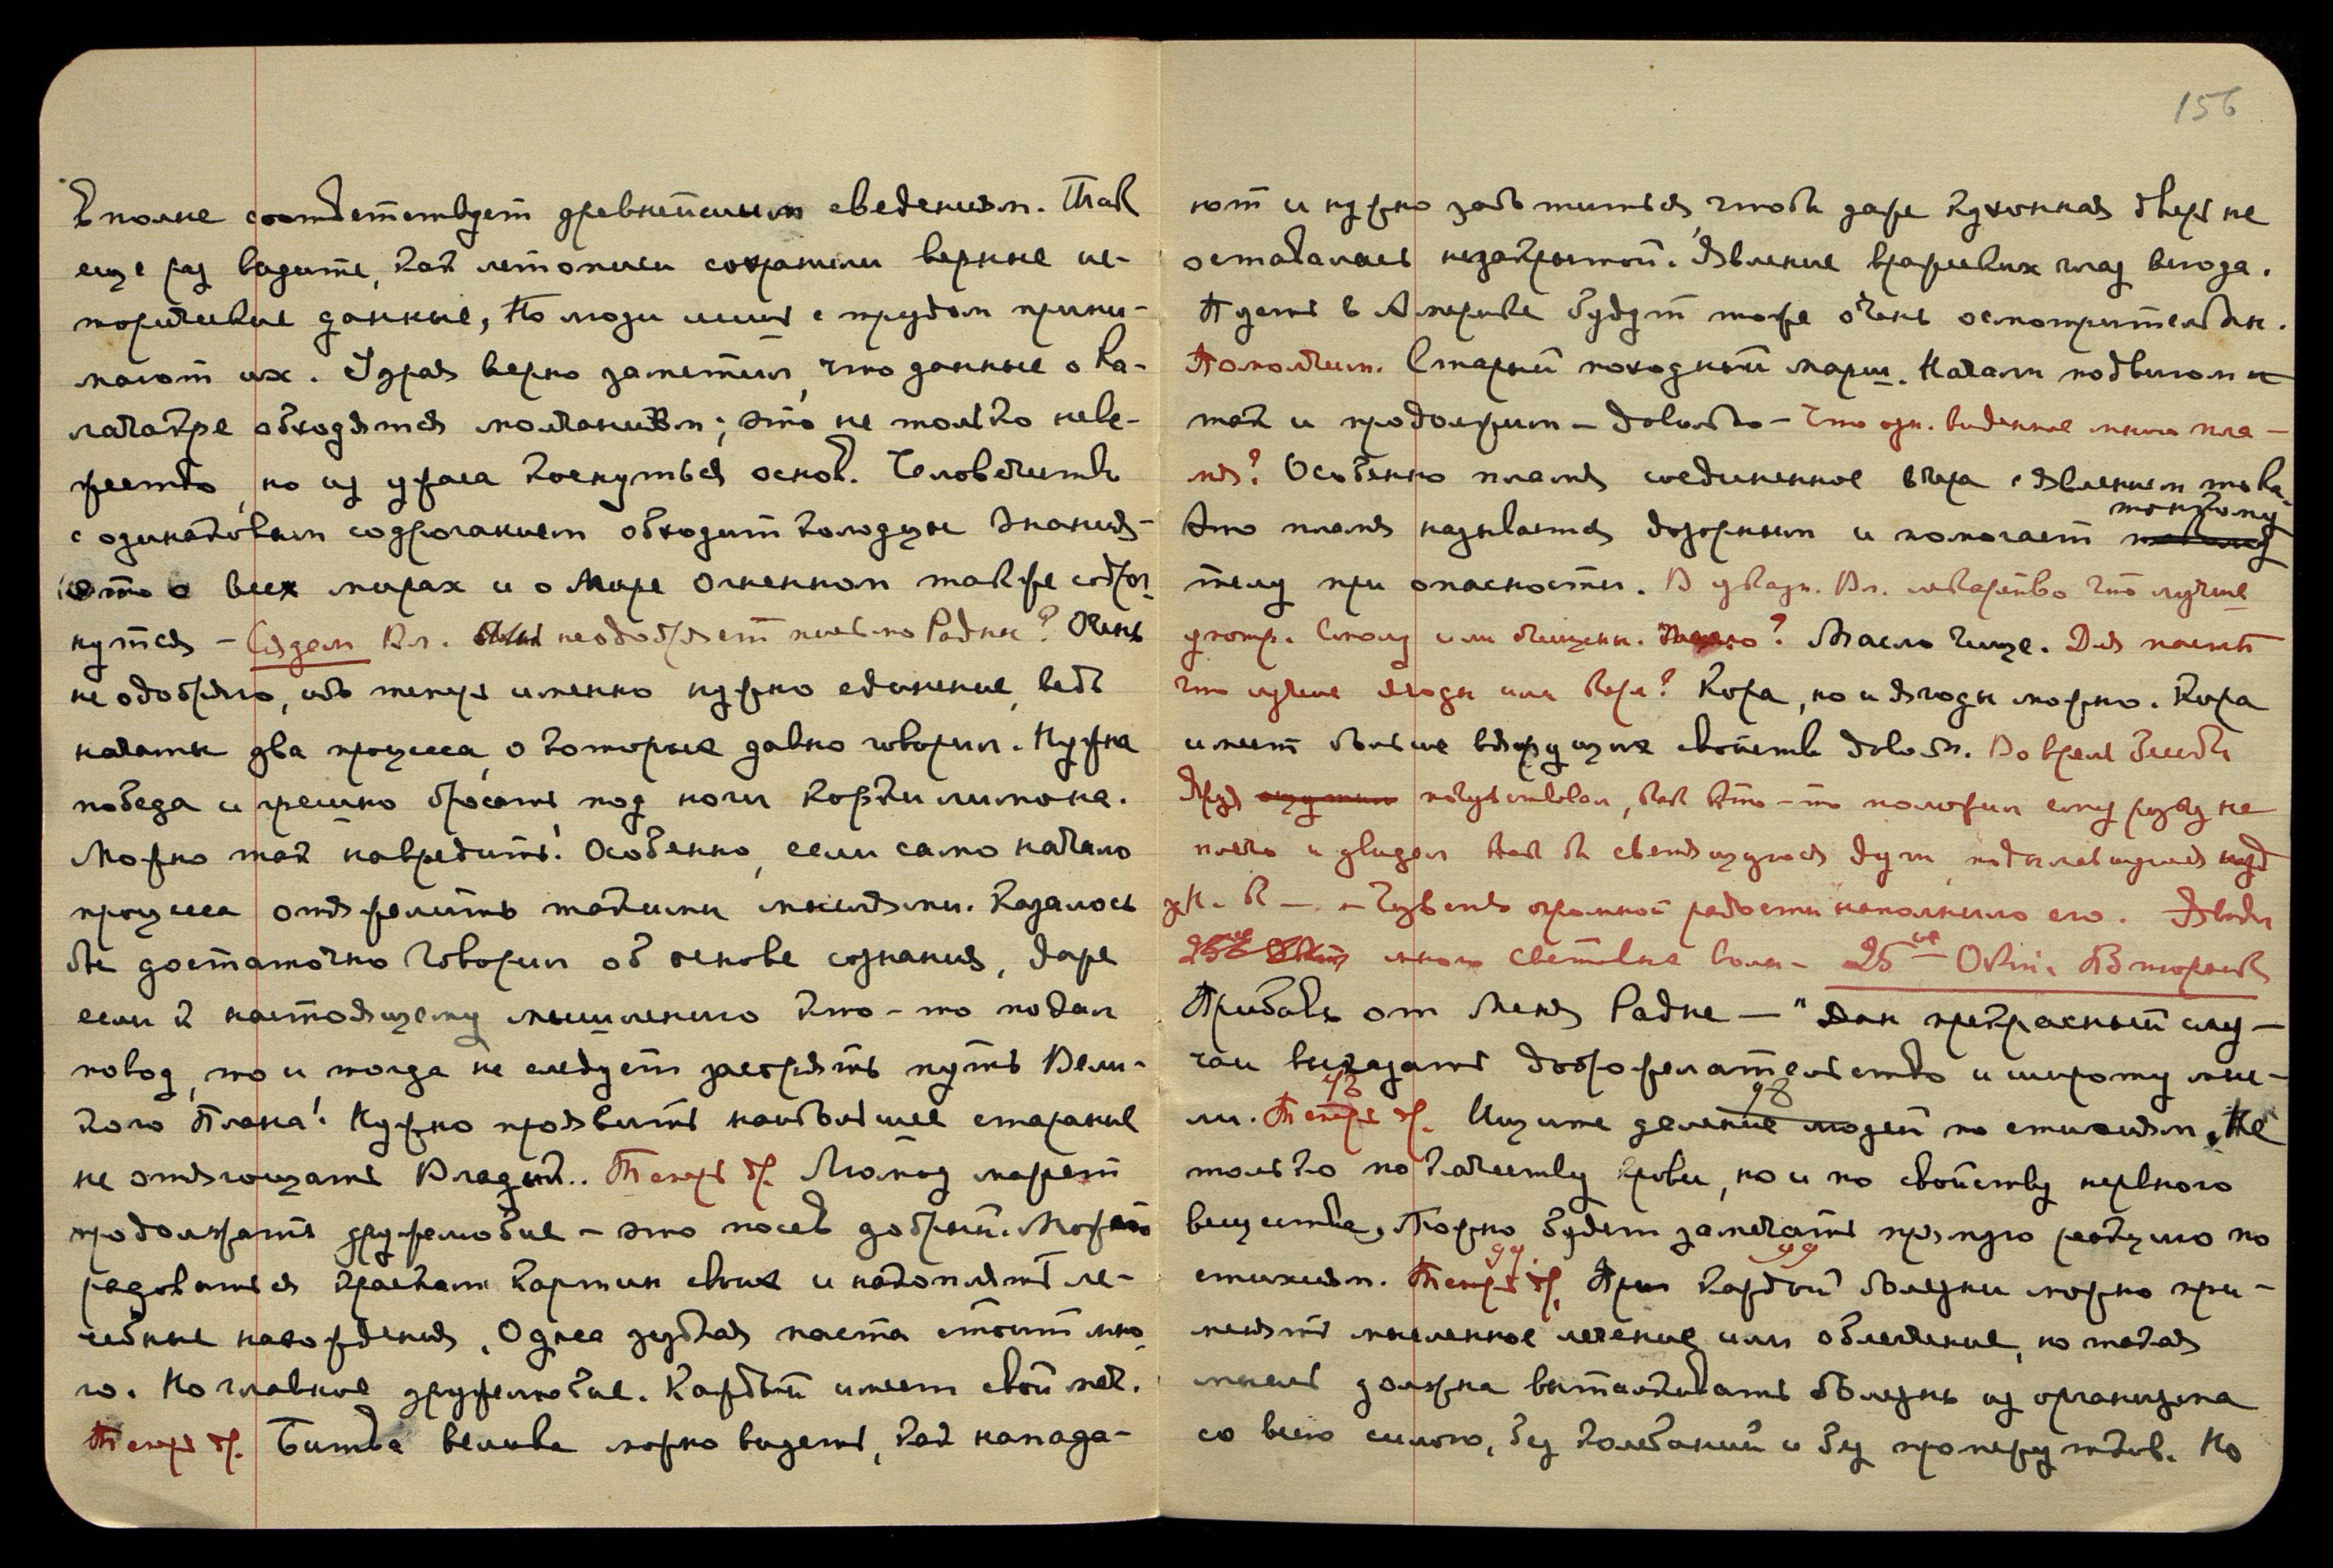 156
Вполне соответствует древнейшим сведениям. Так
еще раз видите, как летописи сохранили верные ис-
торические данные, но люди лишь с трудом прини-
мают их. Удрая верно заметил, что данные о Ка-
лачакре обходятся молчанием; это не только неве-
жество, но из ужаса коснуться основ. Человечество
с одинаковым содроганием обходит колодцы знания-
это о всех мирах и о Мире Огненном также содрог-
нутся – Сядем Вл. не одобряет письмо Радны? Очень
не одобряю, ибо теперь именно нужно единение, ведь
начаты два процесса, о которые давно говорил. Нужна
победа и грешно бросать под ноги корки лимона.
Можно так навредить! Особенно, если само начало
процесса отяжелить такими мыслями. Казалось
бы достаточно говорил об основе сознания, даже
если к настоящему мышлению кто-то подал
повод, то и тогда не следует засорять путь Вели-
кого Плана! Нужно проявить наибольшее старание
не отягощать Владык.. Теперь др. Люмоу может
продолжать дружелюбие – это посев добрый. Можно
радоваться краскам картин своих и накоплять ле-
чебные нахождения. Одна зубная паста стоит мно-
го. Но главное дружелюбие. Каждый имеет свой меч.
Теперь др. Битва велика можно видеть, как напада-
ют и нужно заботиться, чтобы даже кухонная дверь не
оставалась незакрытой. Явление вражеских глаз всюда.
Пусть в Америке будут тоже очень осмотрительны.
Помолчим. Старый походный марш. Начали подвигом и
так и продолжим – довольно – Что озн. виденное мною пла-
мя? Особенно пламя соединенное вчера с явлением
Это пламя называется дозорным и помогает тонкому
телу при опасности. В указ. Вл. лекарство что лучше
употр. смолу или очищен. ? Масло чище. Для пасты
что лучше ягоды или кора? Кора, но и ягоды можно. Кора
имеет больше вяжущих свойств довольно. Во время беседы
Удрая почувствовал, как кто-то положил ему руку на
плечо и увидел как бы светящуюся дугу, поднявшуюся над
Н. К. – и чувство огромной радости наполнило его. Явлены
много световые волн – 25ое Окт. Вторник
Прибавь от Меня Радне – "Дан прекрасный слу-
чай выказать доброжелательство и широту мыс-
ли. Теперь др. Ищите деление людей по стихиям. Не
98 98
только по качеству крови, но и по свойству нервного
вещества. Можно будет замечать прямую реакцию по
стихиям. Теперь др. При каждой болезни можно при-
99 99
менять мысленное лечение или облегчение, но такая
мысль должна выталкивать болезнь из организма
со всею силою, без колебаний и без промежутков. Но